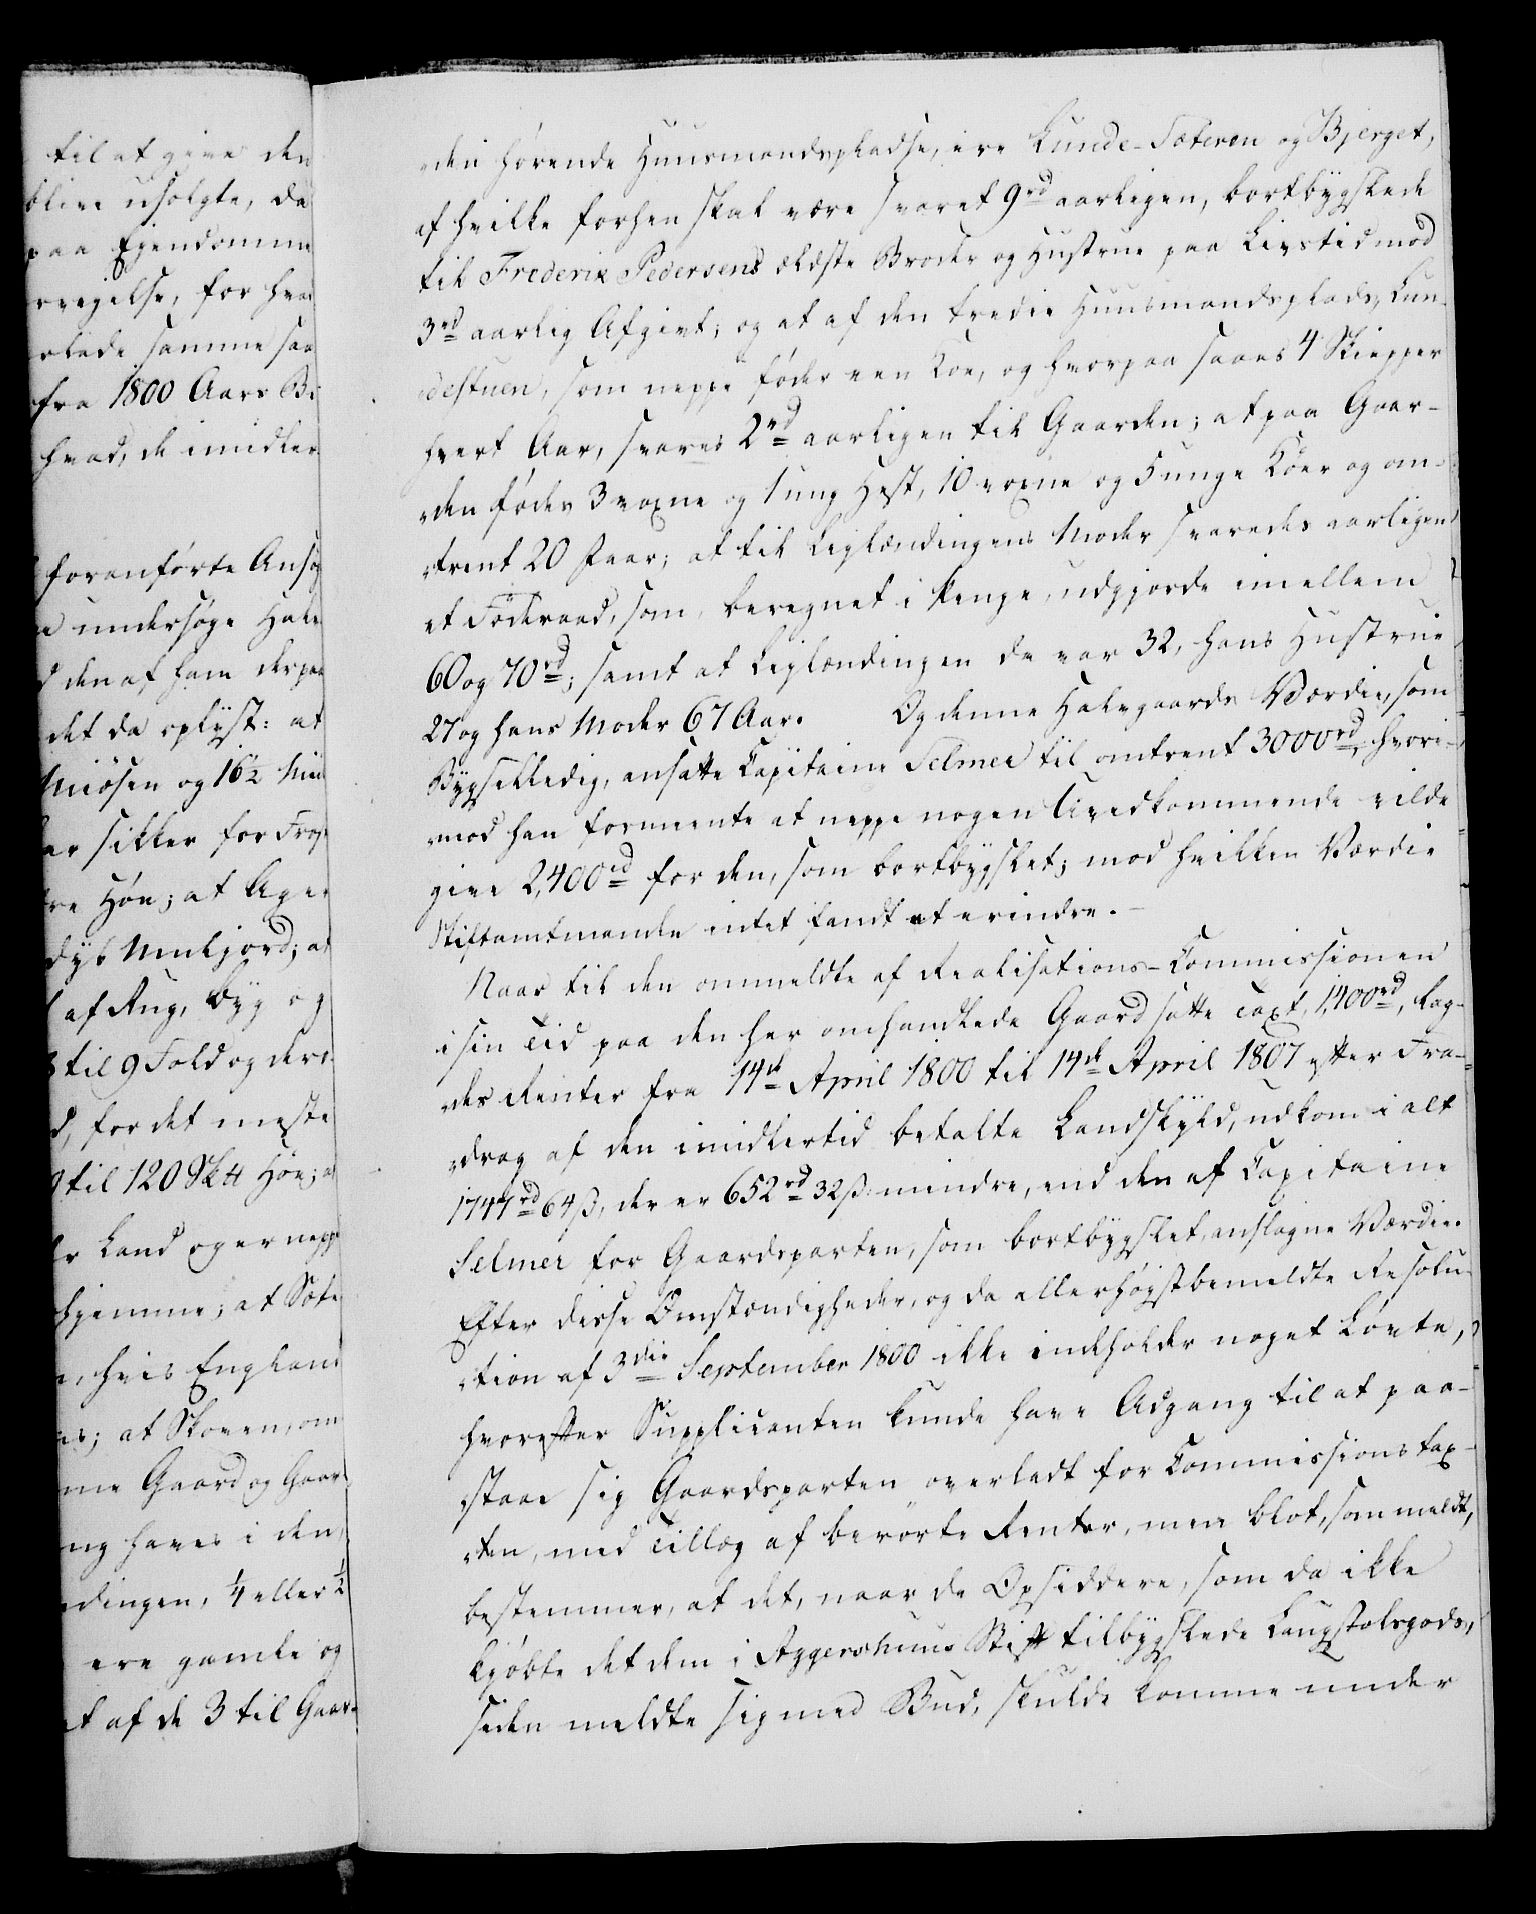 til at give den
blive usolgte, da
paa Ejendomme
vejelse, for hva
lade samme saa
fra 1800 Aars Be
hvad, de imidler
foranførte Ansø
undersøge Halv
den af ham derpaa
det da oplyst: at
Miøsen og 16½ Miil
er sikker for Fros
Høe; at Ager
dyb Muldjord; at
af Rug, Byg og
til 9 Fold og der
d, for det meste
til 120 Sk℔ Høe; a
Land og er neppe
hjemme; at Sæte
, hvis England
es; at Skoven, om
me Gaard og Gaar
ng haves i den
dingen, ¼ eller ½
ere gamle og
t af de 3 til Gaar-
den hørende Huusmandspladse, ere Lunde-Sæteren og Bjerget,
af hvilke forhen skal være svaret 9rd aarligen, bortbygslede
til Frederik Pedersens ældste Broder og Hustrue paa Livstid mod
3rd aarlig Afgivt; og at af den tredie Huusmandsplads, Lun-
destuen, som neppe føder een Koe, og hvorpaa saaes 4 Skiepper
hvert Aar, svares 2rd aarligen til Gaarden; at paa Gaar-
den fødes 3 voxne og 1 ung Hest, 10 voxne og 5 unge Køer og om-
trent 20 Faar; at til Leylændingens Moder svaredes aarligen
et Føderaad, som, beregnet i Penge, udgjorde imellem
60 og 70rd; samt at Leylændingen da var 32, hans Hustrue
27 og hans Moder 67 Aar. Og denne Halvgaards Værdie, som
Bygselledig, ansatte Capitaine Selmer til omtrent 3000rd, hvori-
mod han formeente at neppe nogen Uvedkommende vilde
give 2,400rd for den, som bortbygslet; mod hvilken Værdie
Stiftamtmanden intet fandt at erindre.
Naar til den ommeldte af Realisations-Commissionen
i sin Tid paa den her omhandlede Gaard satte Taxt, 1,400rd, lag-
des Renter fra 14de April 1800 til 14de April 1807 efter Fra-
drag af den imidlertid betalte Landskyld, udkom i alt
1747rd 64ß, der er 652rd 32ß mindre, end den af Capitaine
Selmer for Gaardsparten, som bortbygslet, anslagne Værdie.
Efter disse Omstændigheder, og da allerhøystbemeldte Resolu-
tion af 3die September 1800 ikke indeholder noget Løvte,
hvorefter Supplicanten kunde have Adgang til at paa-
staae sig Gaardsparten overladt for Commissionstax-
ten, med Tillæg af berørte Renter, men blot, som meldt,
bestemmer, at det, naar de Opsiddere, som da ikke
kjøbte det dem i Aggershuus Stift tilbygslede Laugstolsgods,
siden meldte sig med Bud, skulde komme under